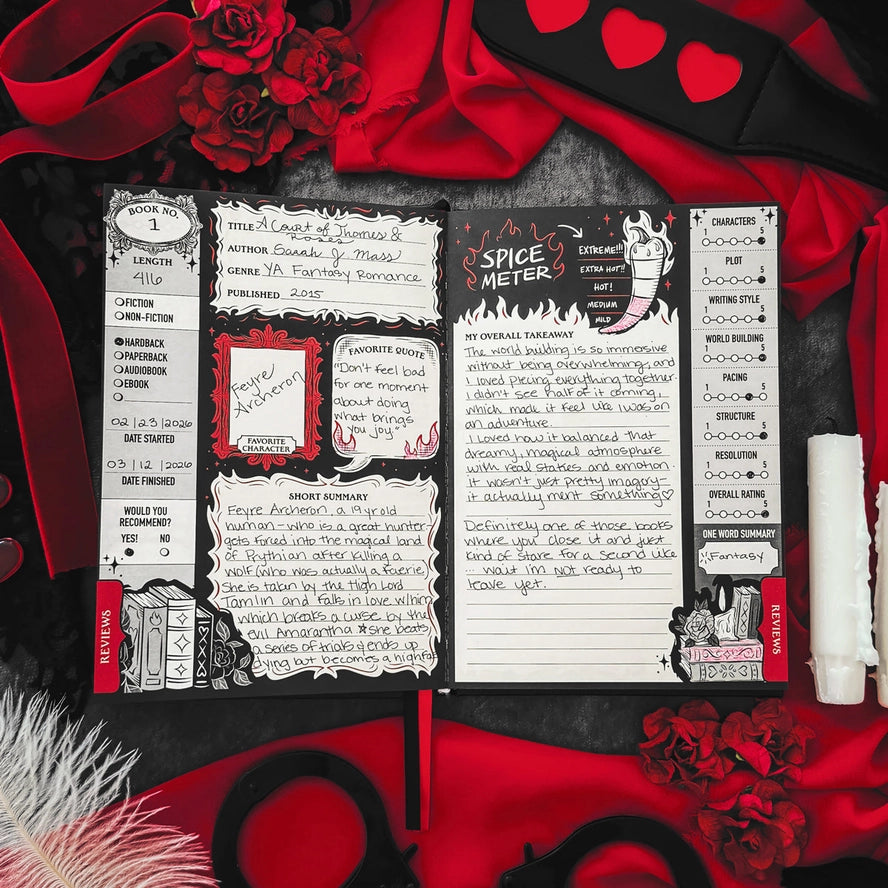 BOOK NO.
1
LENGTH
416
FICTION
NON-FICTION
HARDBACK
PAPERBACK
AUDIOBOOK
EBOOK
02 | 23 | 2026
DATE STARTED
03 | 12 | 2026
DATE FINISHED
WOULD YOU
RECOMMEND?
YES! NO
REVIEWS
TITLE A Court of Thorns &
Roses
AUTHOR Sarah J Mass
GENRE YA Fantasy Romance
PUBLISHED 2015
Feyre
Archeron
FAVORITE
CHARACTER
FAVORITE QUOTE
"Don't feel bad
for one moment
about doing
what brings
you joy."
SHORT SUMMARY
Feyre Archeron, a 19 yr old
human - who is a great hunter-
gets forced into the magical land
of Prythian after killing a
wolf (who was actually a faerie)
She is taken by the High Lord
Tamlin and falls in love w/him
which breaks a curse by the
evil Amarantha ☆ she beats
a series of trials & ends up
dying but becomes a highfae
SPICE
METER
EXTREME!!!
EXTRA HOT!!
HOT!
MEDIUM
MILD
MY OVERALL TAKEAWAY
The world building is so immersive
without being overwhelming, and
I loved piecing everything together.
I didn't see half of it coming,
which made it feel like I was on
an adventure.
I loved how it balanced that
dreamy, magical atmosphere
with real stakes and emotion.
It wasn't just pretty imagery-
it actually ment something♡
Definitely one of those books
where you close it and just
kind of stare for a second like
... wait i'm NOT ready to
leave yet.
CHARACTERS
1 5
PLOT
1 5
WRITING STYLE
1 5
WORLD BUILDING
1 5
PACING
1 5
STRUCTURE
1 5
RESOLUTION
1 5
OVERALL RATING
1 5
ONE WORD SUMMARY
Fantasy
REVIEWS